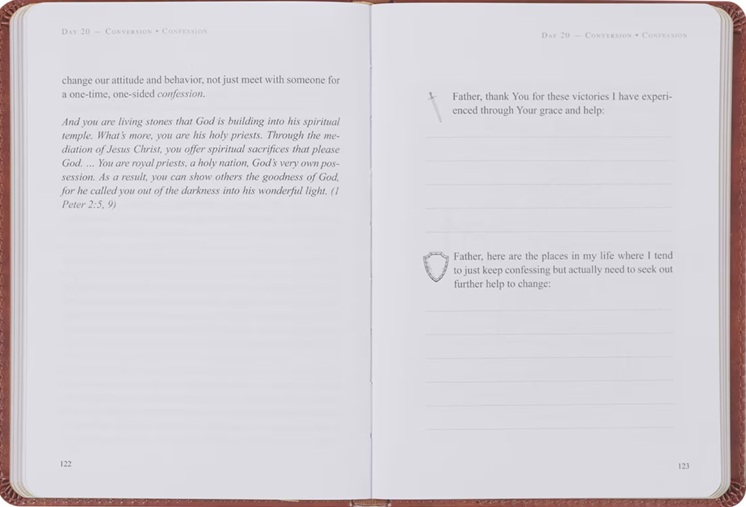 Day 20 — Conversion • Confession
change our attitude and behavior, not just meet with someone for
a one-time, one-sided confession.
And you are living stones that God is building into his spiritual
temple. What's more, you are his holy priests. Through the me-
diation of Jesus Christ, you offer spiritual sacrifices that please
God. … You are royal priests, a holy nation, God's very own pos-
session. As a result, you can show others the goodness of God,
for he called you out of the darkness into his wonderful light. (1
Peter 2:5, 9)
122
Day 20 — Conversion • Confession
Father, thank You for these victories I have experi-
enced through Your grace and help:
Father, here are the places in my life where I tend
to just keep confessing but actually need to seek out
further help to change:
123